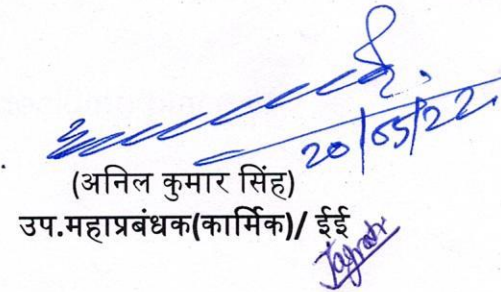 20/05/22
(अनिल कुमार सिंह)
उप.महाप्रबंधक(कार्मिक)/ ईई